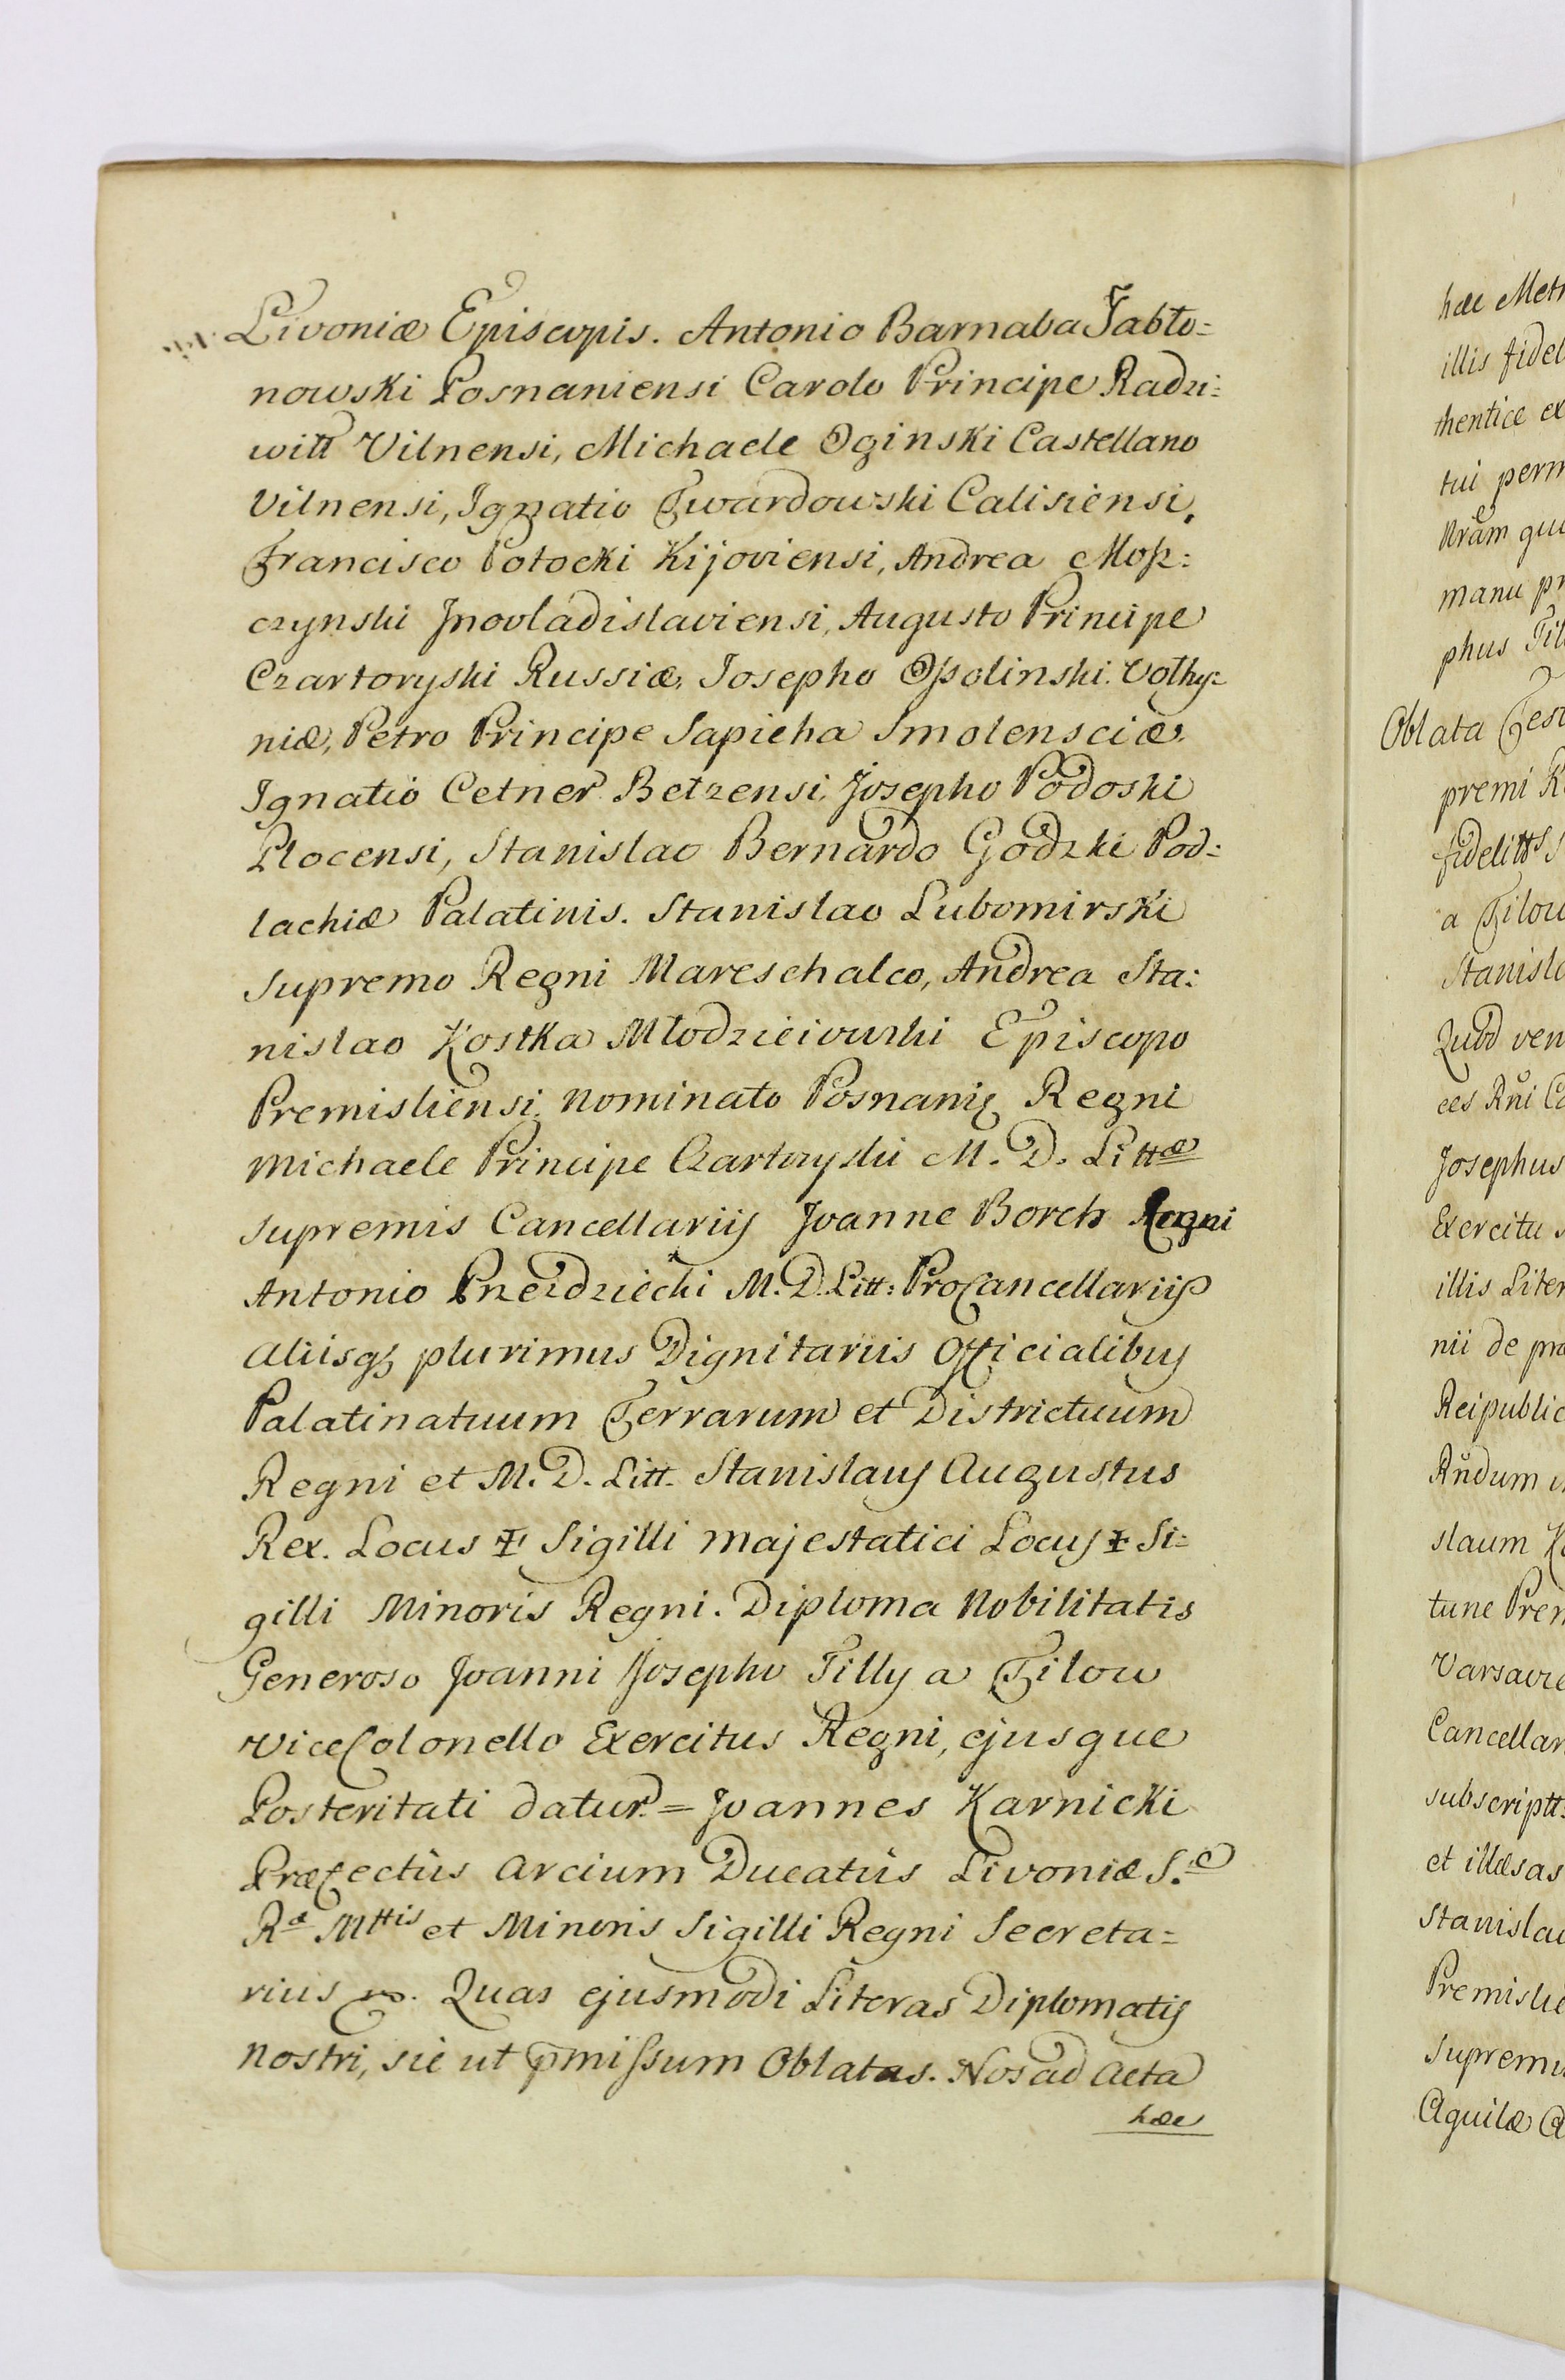 Livoniæ Episcopis. Antonio Barnaba Jabło=
nowski Posnaniensi Carolo Principe Radzi=
wiłł Vilnensi, Michaele Oginski Castellano
Vilnensi, Ignatio Twardowski Calisiensi,
Francisco Potocki Kijoviensi, Andrea Mosz=
czynski Jnovladislaviensi, Augusto Principe
Czartoryski Russiæ, Josepho Ossolinski Volhy=
niæ, Petro Principe Sapieha Smolensciæ,
Ignatio Cetner Betzensi, Josepho Podoski
Plocensi, Stanislao Bernardo Godzki Pod=
lachiæ Palatinis. Stanislao Lubomirski
Supremo Regni Mareschalco, Andrea Sta=
nislao Kostka Młodzieiowski Episcopo
Premisliensi, nominato Posnanię Regni
Michaele Principe Czartoryski M. D. Littæ
Supremis Cancellariis Joanne Borch Regni
Antonio Przezdziecki M. D. Litt: ProCancellariis
aliisq3 plurimus Dignitariis Officialibus
Palatinatuum Terrarum et Districtuum
Regni et M. D. Litt. Stanislaus Augustus
Rex. Locus ✠ Sigilli Majestatici Locus ✠ Si=
gilli Minoris Regni. Diploma Nobilitatis
Generoso Joanni Josepho Tilly a Tilow
ViceColonello Exercitus Regni, ejusque
Posteritati datur. = Joannes Karnicki
Præfectus Arcium Ducatûs Livoniæ S.æ
Ræ Mttis et Minoris Sigilli Regni Secreta=
rius mp. Quas ejusmodi Literas Diplomatis
nostri, sic ut p̄missum Oblatas. Nos ad Acta
hæc
hæc Metr
illis fidel
thentice ex
tui perm
Nram qu
manu pr
phus Til
Oblata Test
premi R
fidelitts S
a Tilow
Stanisla
Quod ven
ees Rñi Ca
Josephus
Exercitu
illis Liter
nii de præ
Reipublic
Rñdum
slaum K
tunc Prem
Varsavie
Cancellar
subscriptt:
et illæsas
Stanislau
Premislie
Supremu
Aquilæ A